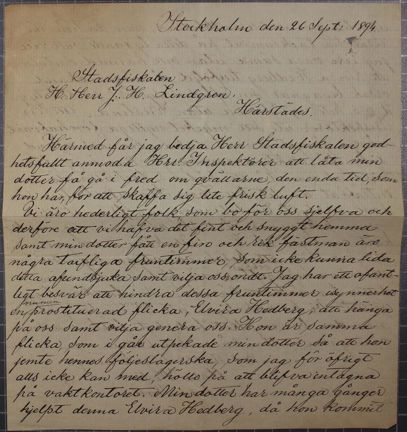 Stockholm den 26 Sept. 1894
Stadsfiskalen
H. Herr J. H. Lindgren.
Härstädes.
Härmed får jag bedja Herr Stadsfiskalen god-
hetsfullt anmoda Hrr Inspektörer att låta min
dotter få gå i fred om qvällarne, den enda tid, som
hon har, för att skaffa sig lite frisk luft.
Vi äro hederligt folk, som bo för oss sjelfva och
derföre att vi hafva det fint och snyggt hemma
samt min dotter fått en fin och rik fästman äro
några taifliga fruntimmer, som icke kunna lida
detta, afundsjuka samt vilja oss ondt. Jag har ett ofant-
ligt besvär att hindra dessa fruntimmer i synnerhet
en prostituerad flicka, Elvira Hedberg, att hänga
på oss samt vilja genera oss. Hon är samma
flicka som i går utpekade min dotter så att hon
jemte hennes följeslagerska, som jag för öfrigt
alls icke kan med, hölls på att blifva intagna
på vaktkontoret. Min dotter har många gånger
hjelpt denna Elvira Hedberg, då hon kommit